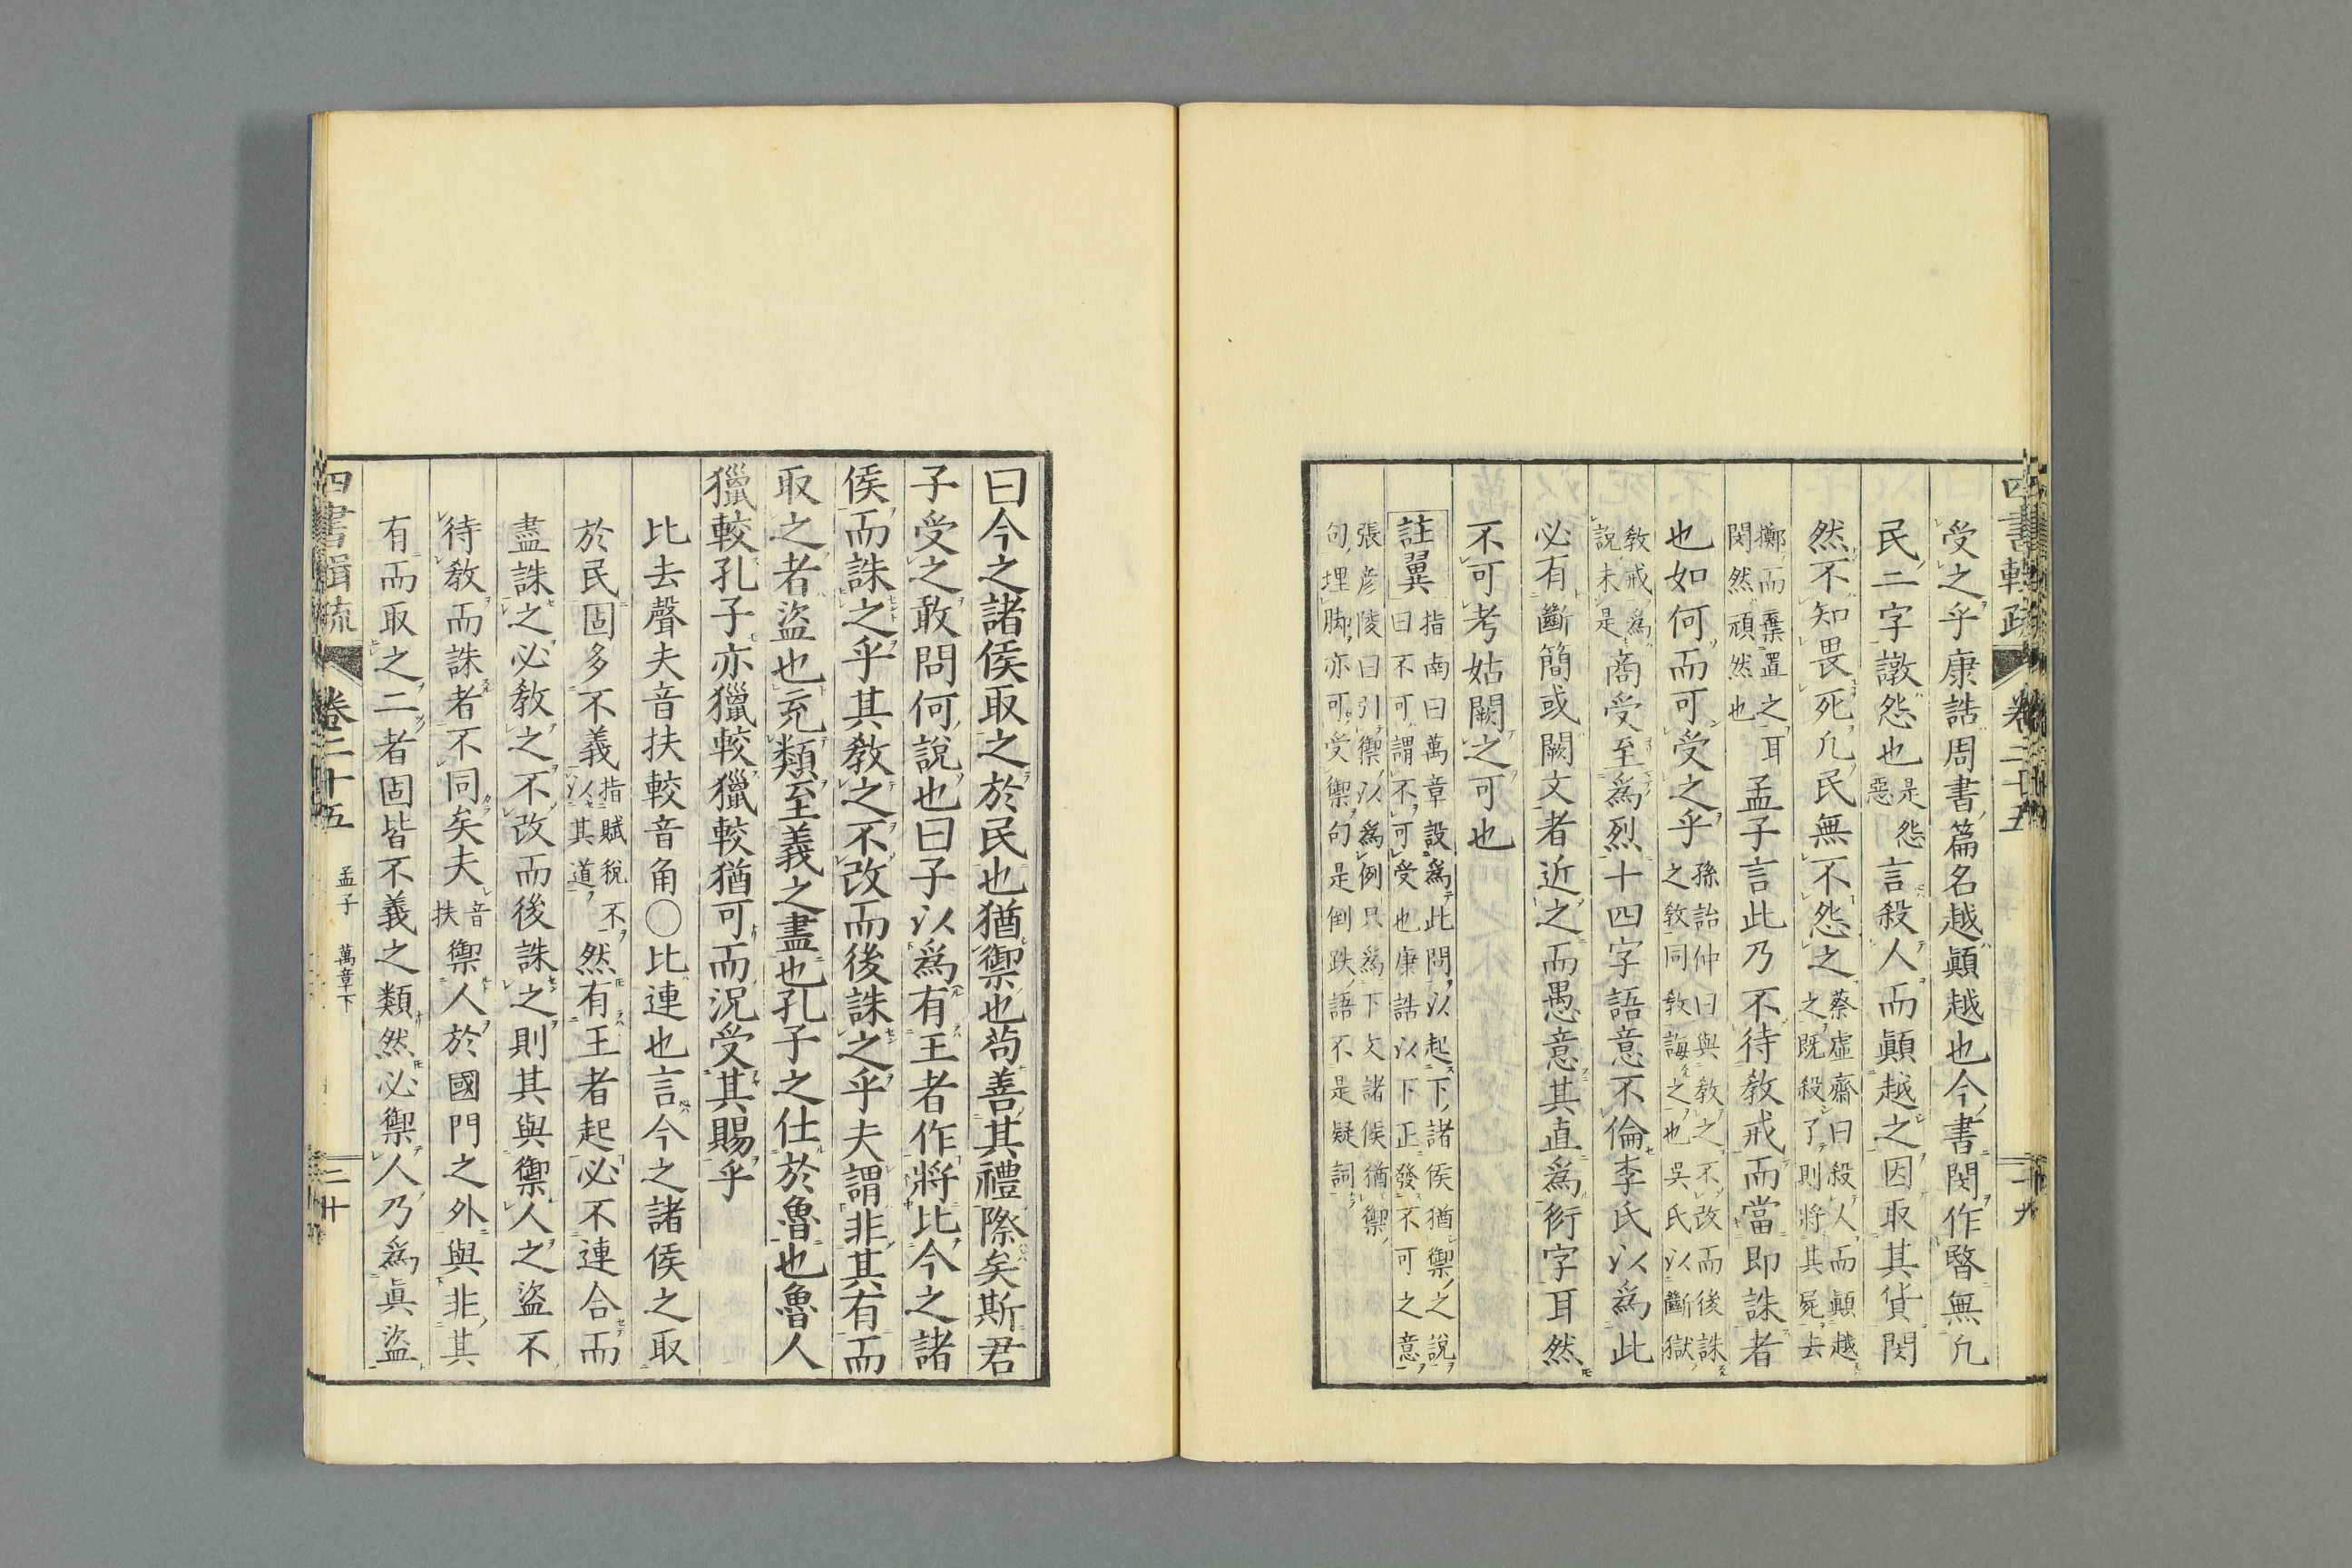 受之乎康誥周書篇名越顚越也今書閔作暋無凡
民二字譈怨也是怨惡言殺人而顚越之因取其貨閔
然不知畏死凡民無不怨之蔡虛齋曰殺人而顚越之既殺了則將其屍去
擲而棄置之耳閔然頑然也孟子言此乃不待敎戒而當即誅者
也如何而可受之乎孫詒仲曰與敎之不改而後誅之敎同敎誨之也吳氏以斷獄
敎戒爲說未是商受至爲烈十四字語意不倫李氏以爲此
必有斷簡或闕文者近之而愚意其直爲衍字耳然
不可考姑闕之可也
註翼指南曰萬章設爲此問以起下諸侯猶禦之說曰不可謂不可受也康誥以下正發不可之意
張彦陵曰引禦以爲例只爲下文諸侯猶禦句埋脚亦可受禦句是倒跌語不是疑詞
四書輯疏 卷二十五 二十九
曰今之諸侯取之於民也猶禦也茍善其禮際矣斯君
子受之敢問何說也曰子以爲有王者作將比今之諸
侯而誅之乎其敎之不改而後誅之乎夫謂非其有而
取之者盜也充類至義之盡也孔子之仕於魯也魯人
獵較孔子亦獵較獵較猶可而況受其賜乎
比去聲夫音扶較音角○比連也言今之諸侯之取
於民固多不義指賦稅不以其道然有王者起必不連合而
盡誅之必敎之不改而後誅之則其與禦人之盜不
待敎而誅者不同矣夫音扶禦人於國門之外與非其
有而取之二者固皆不義之類然必禦人乃爲眞盜
四書輯疏 卷二十五 孟子 萬章下 三十